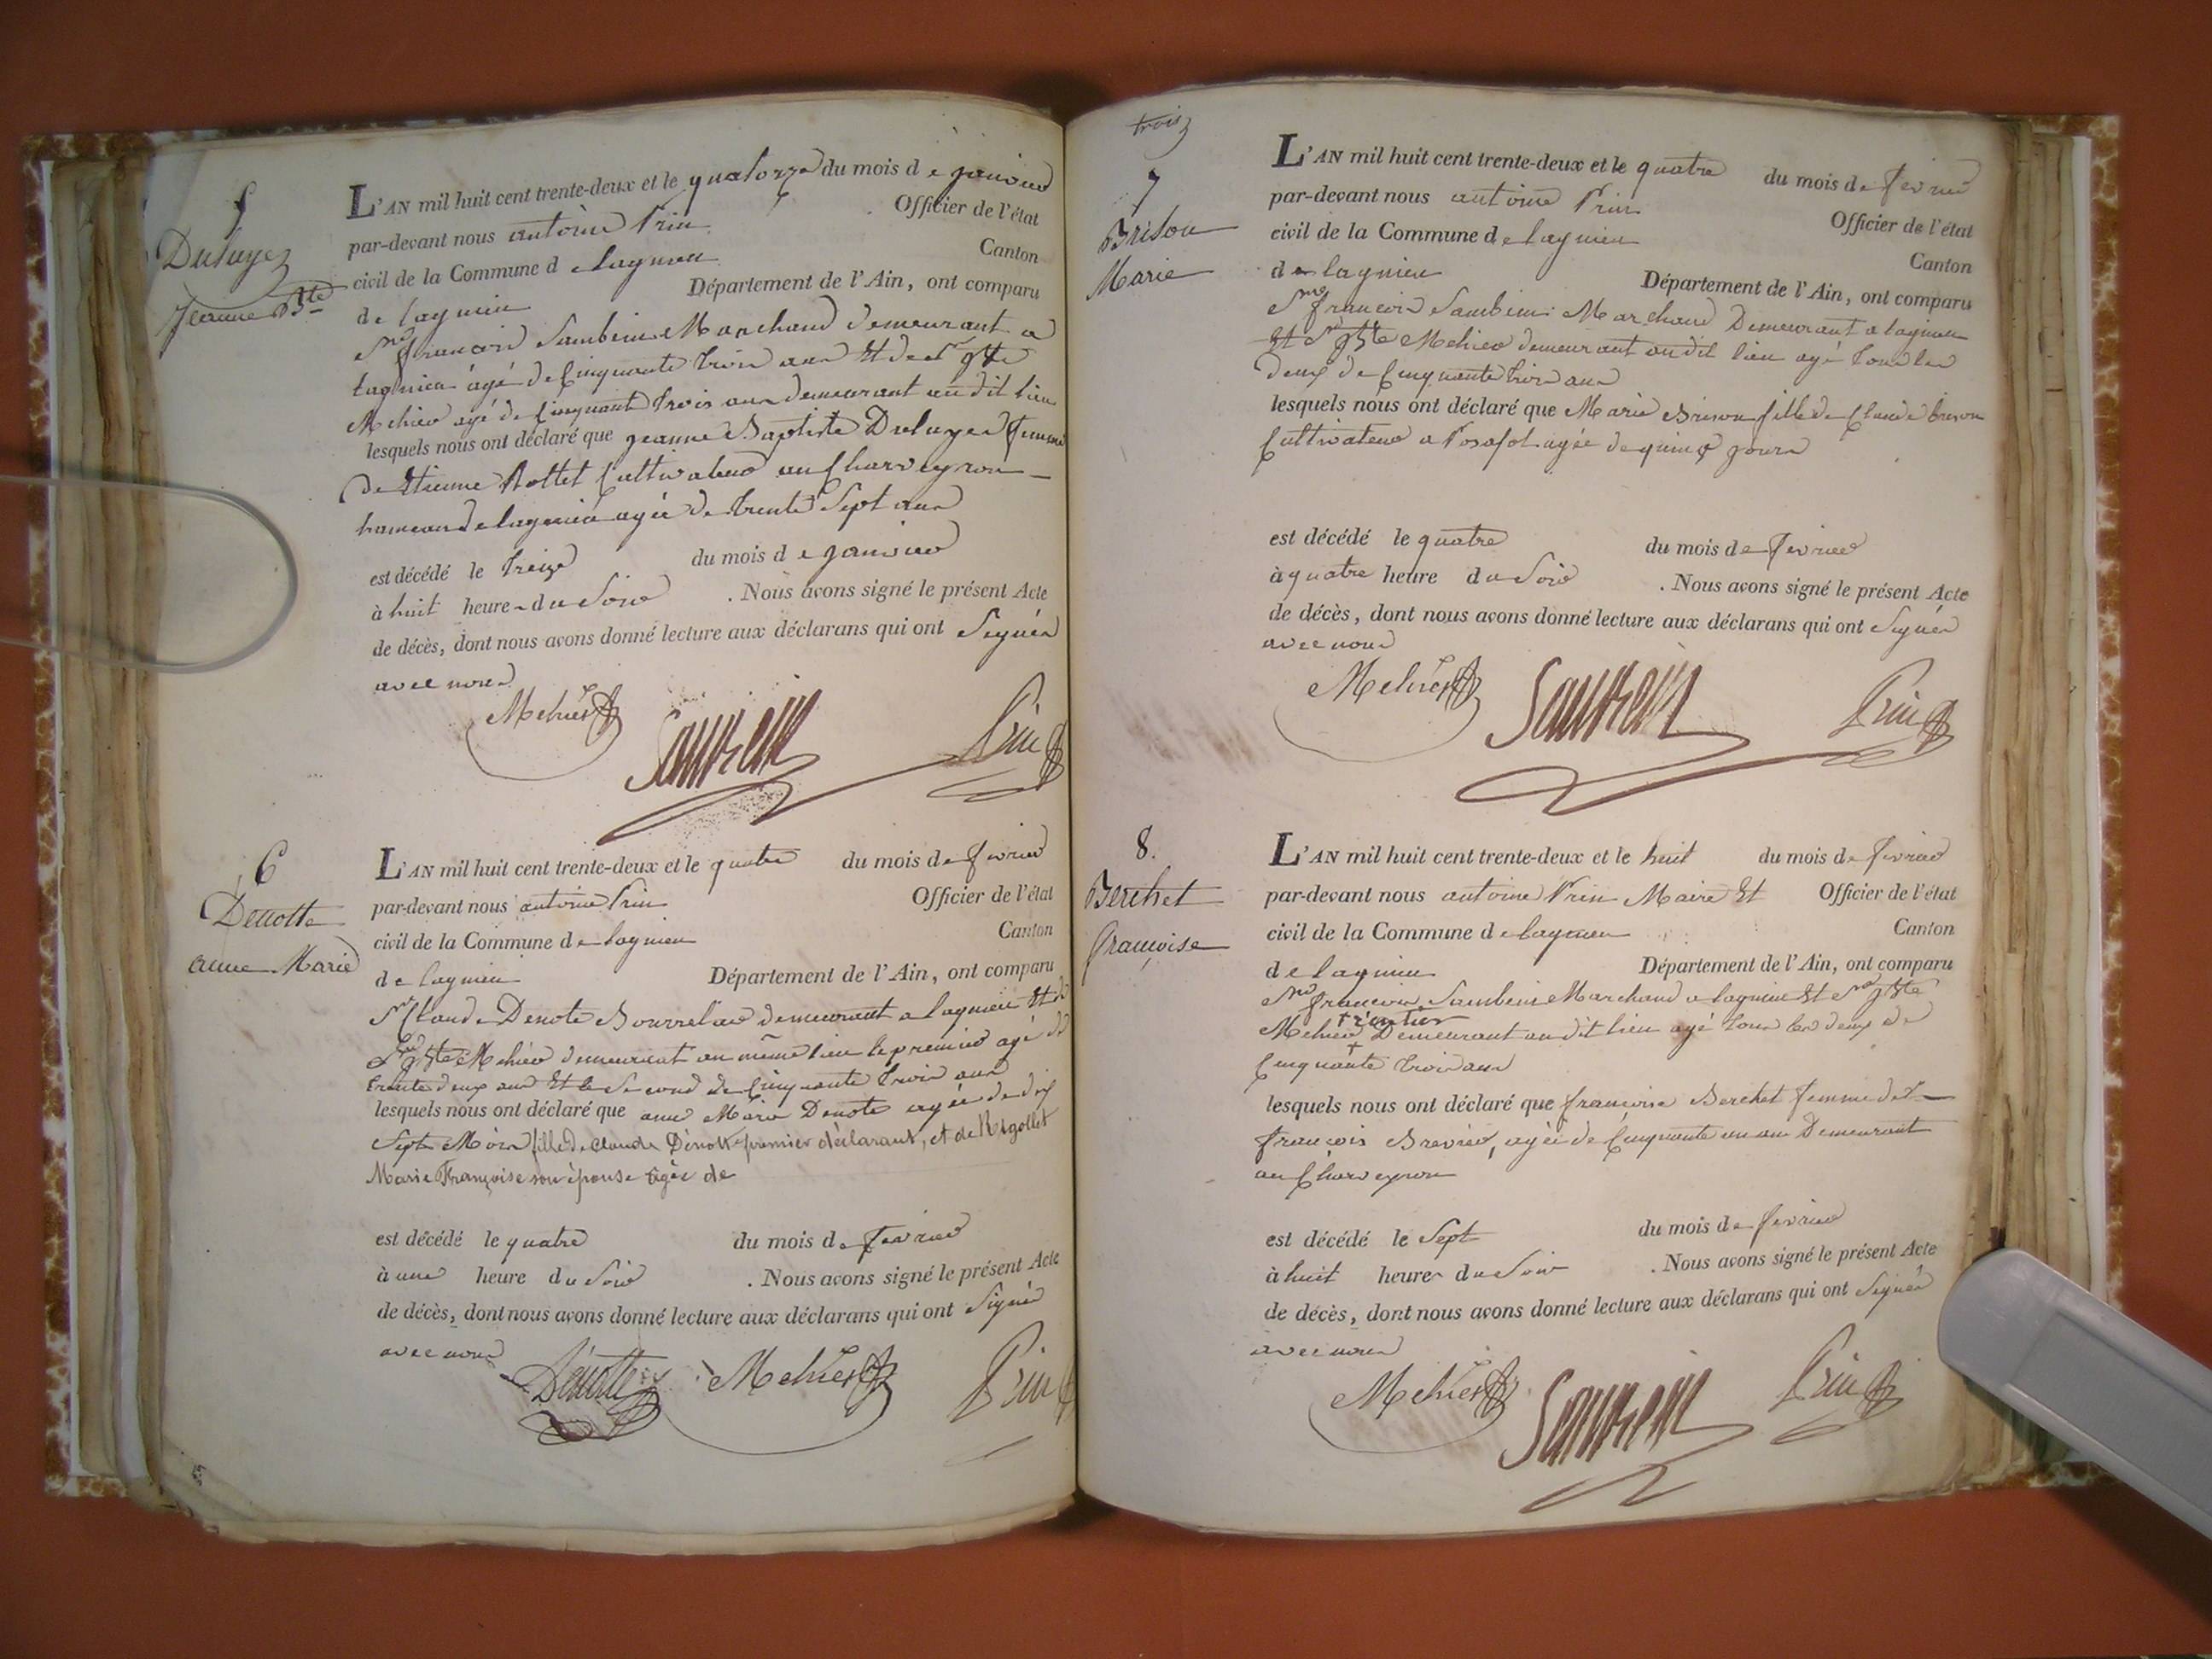 5
Duluye
Jeanne Bte
L'AN mil huit cent trente-deux et le quatorze du mois de janvier
par-devant nous antoine Prin Officier de l'état
civil de la Commune de lagnieu Canton
de lagnieu Département de l'Ain, ont comparu
Sr françois Sambein Marchand demeurant a
lagnieu âgé de Cinquante trois ans Et de Sr jBte
Mehier agé de Cinquante trois ans demeurant audit lieu
lesquels nous ont déclaré que jeanne Baptiste Duluyer femme
de Etienne Rottet Cultivateur au Charveyron
hameau de lagnieu agée de trente Sept ans
est décédé le treize du mois de janvier
à huit heures du Soir . Nous avons signé le présent Acte
de décès, dont nous avons donné lecture aux déclarans qui ont Signés
avec nous
Mehier Prin
6
Denotte
anne Marie
L'AN mil huit cent trente-deux et le quatre du mois de fevrier
par-devant nous antoine Prin Officier de l'état
civil de la Commune de lagnieu Canton
de lagnieu Département de l'Ain, ont comparu
Sr Claude Denote Bourrelier demeurant a lagnieu Et de
Sr jBte Mehier demeurant au même lieu le premier agé de
trente deux ans Et le Second de Cinquante trois ans
lesquels nous ont déclaré que anne Marie Denote agée de dix
Sept Mois fille de Claude Dénotte premier déclarant, et de Rigollet
Marie Françoise son épouse âgée de
est décédé le quatre du mois de fevrier
à une heure du Soir . Nous avons signé le présent Acte
de décès, dont nous avons donné lecture aux déclarans qui ont Signés
avec nous
Dénotte Mehier Prin
trois
7
Brison
Marie
L'AN mil huit cent trente-deux et le quatre du mois de fevrier
par-devant nous antoine Prin Officier de l'état
civil de la Commune de lagnieu Canton
de lagnieu Département de l'Ain, ont comparu
Sr françois Sambein Marchand Demeurant a lagnieu
Et Sr jBte Mehier demeurant audit lieu agé tous les
deux de Cinquante trois ans
lesquels nous ont déclaré que Marie Brison fille de Claude brison
Cultivateur a Posafol agée de quinze jours
est décédé le quatre du mois de fevrier
à quatre heure du Soir . Nous avons signé le présent Acte
de décès, dont nous avons donné lecture aux déclarans qui ont Signés
avec nous
Mehier Prin
8.
Berchet
françoise
L'AN mil huit cent trente-deux et le huit du mois de fevrier
par-devant nous antoine Prin Maire Et Officier de l'état
civil de la Commune de lagnieu Canton
de lagnieu Département de l'Ain, ont comparu
Sr françois Sambein Marchand a lagnieu Et Sr jBte
+ rentier
Mehier Demeurant audit lieu agé tous les deux de
Cinquante trois ans
lesquels nous ont déclaré que françoise Berchet femme de
françois Brevier, agée de Cinquante un ans Demeurant
au Charveyron
est décédé le Sept du mois de fevrier
à huit heures du Soir . Nous avons signé le présent Acte
de décès, dont nous avons donné lecture aux déclarans qui ont Signés
avec nous
Mehier Prin